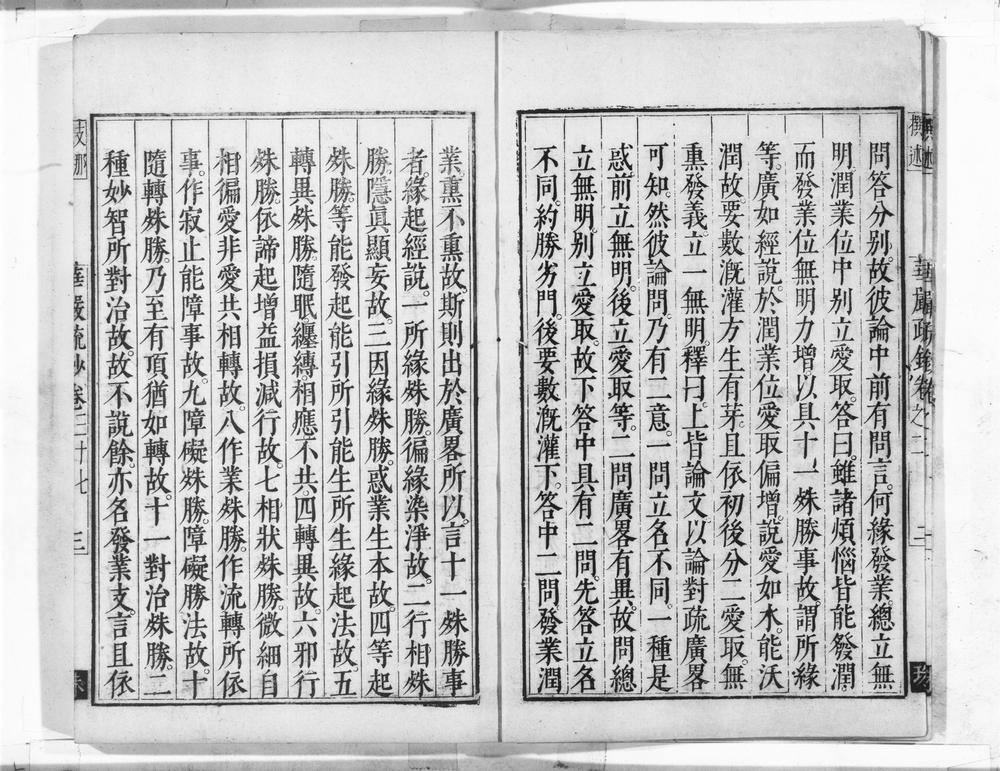 撰述
問答分別。故彼論中前有問言。何緣發業。總立無
明。潤業位中别立愛取。答曰。雖諸煩惱皆能發潤。
而發業位無明力增。以具十一殊勝事故。謂所緣
等。廣如經說。於潤業位愛取偏增。說愛如水。能沃
潤故。要數溉灌方生有芽。且依初後分二愛取。無
熏發義立一無明。釋曰。上皆論文。以論對疏廣畧
可知。然彼論問。乃有二意。一問立名不同。一種是
惑。前立無明。後立愛取等。二問廣畧有異。故問總
立無明。别立愛取。故下答中具有二問。先答立名
不同。約勝劣門。後要數溉灌下。答中二問發業潤
業。熏不熏故。斯則出於廣畧所以。言十一殊勝事
者。緣起經說。一所緣殊勝。徧緣染淨故。二行相殊
勝。隱眞顯妄故。三因緣殊勝。惑業生本故。四等起
殊勝。等能發起能引所引能生所生緣起法故。五
轉異殊勝。隨眠纏縛相應不共。四轉異故。六邪行
殊勝。依諦起增益損減行故。七相狀殊勝。微細自
相徧愛非愛共相轉故。八作業殊勝。作流轉所依
事。作寂止能障事故。九障礙殊勝。障礙勝法故。十
隨轉殊勝。乃至有頂猶如轉故。十一對治殊勝。二
種妙智所對治故。故不說餘。亦名發業支。言且依
支那 華嚴疏鈔卷二十七 三